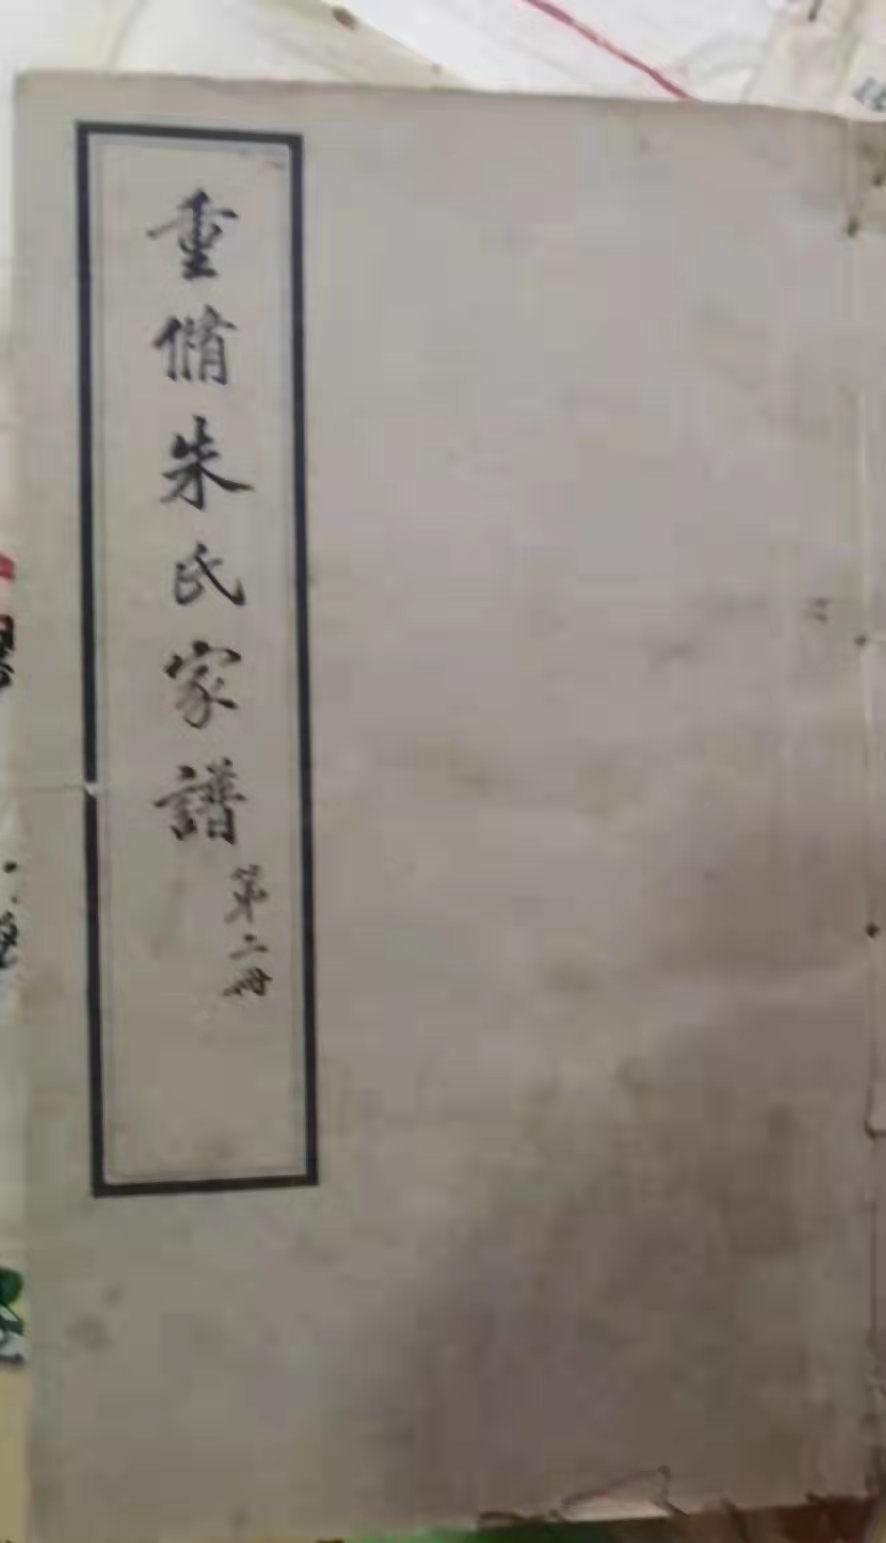 重脩朱氏家譜
第二冊